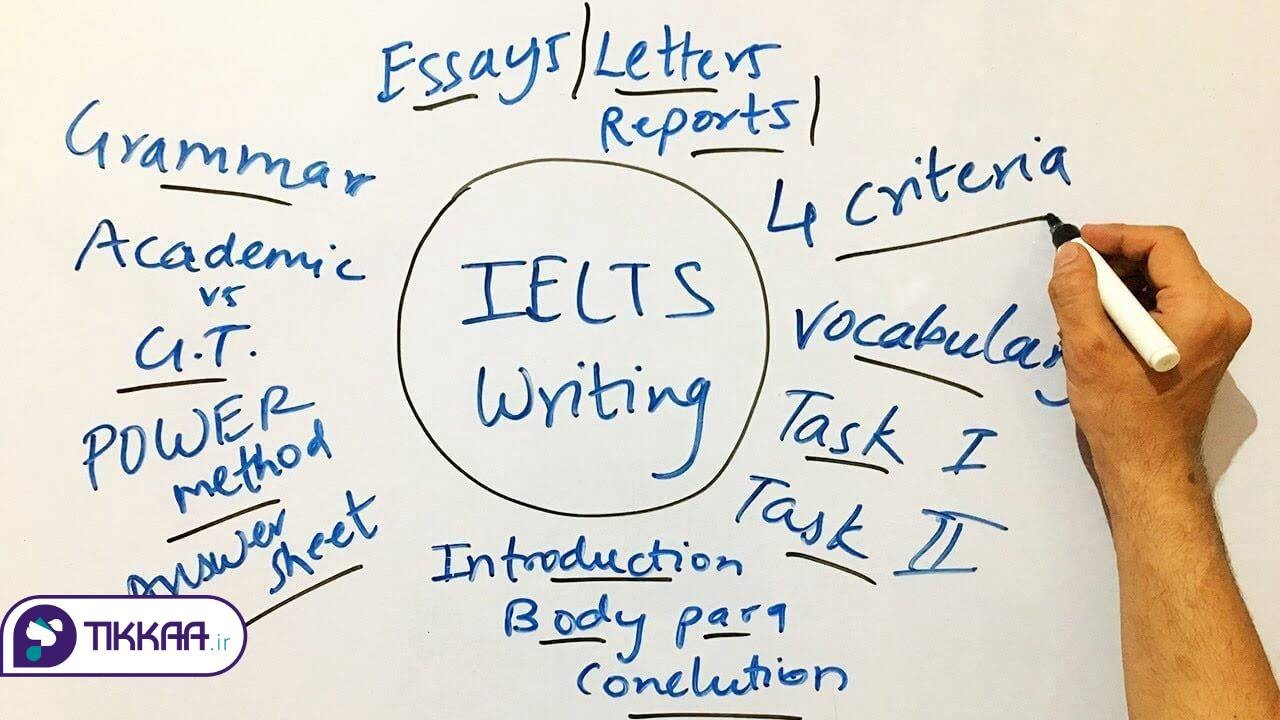 Essays | Letters
Reports |
Grammar
Academic
vs
G.T.
POWER
method
Answer
sheet
IELTS
Writing
4 criteria
Vocabulary
Task I
Task II
Introduction
Body para
Conclution
TIKKAA.ir